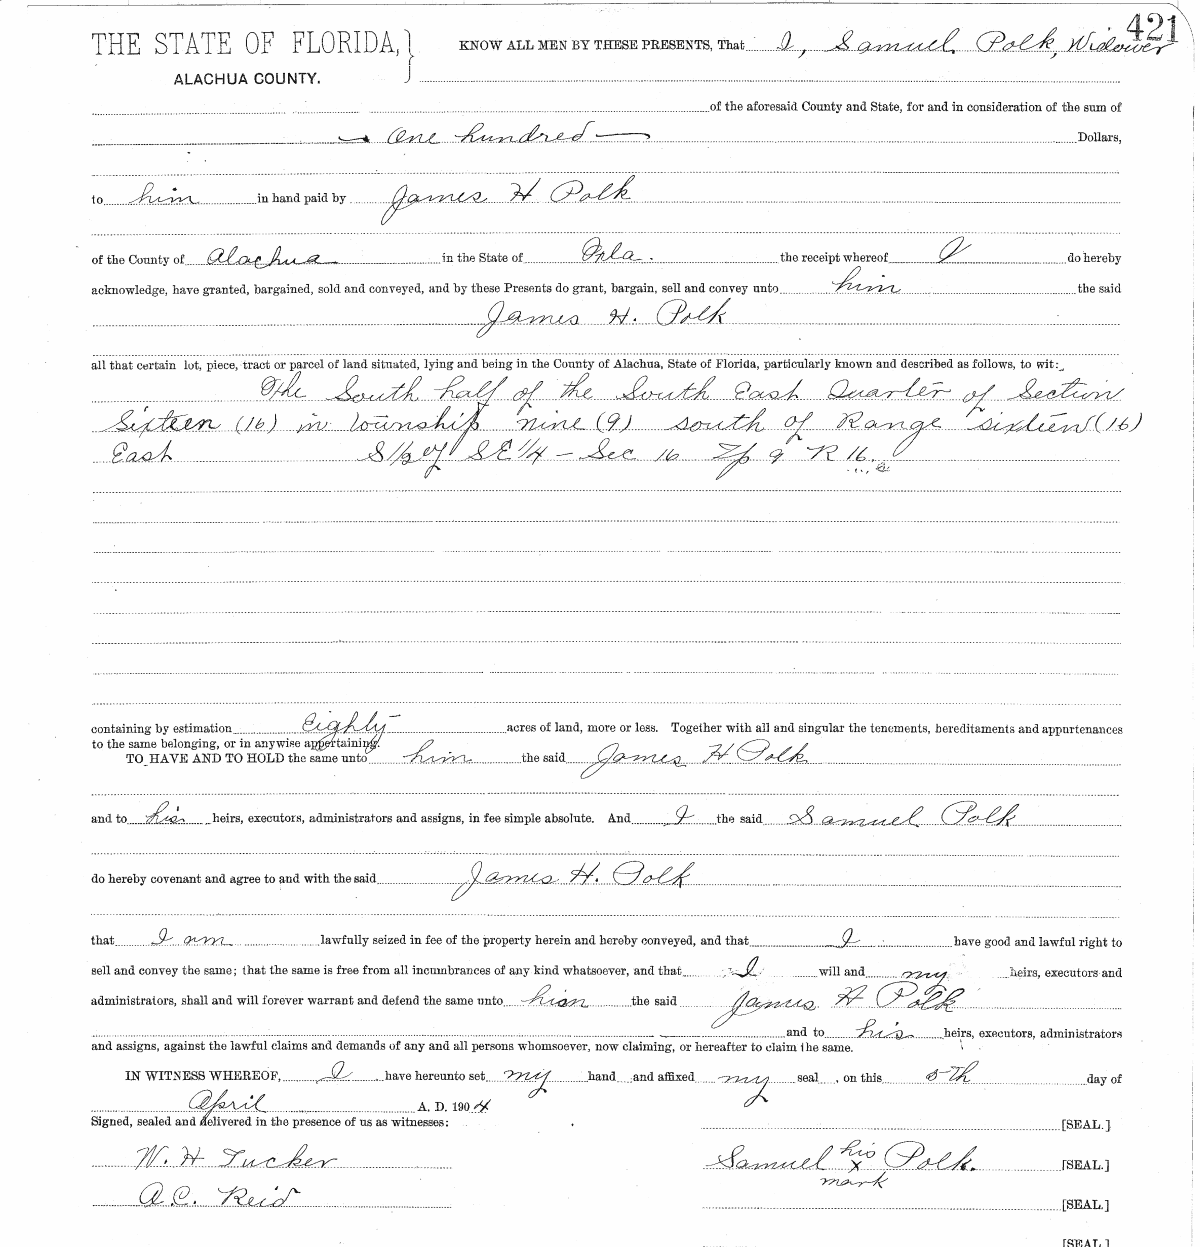 421
THE STATE OF FLORIDA, } KNOW ALL MEN BY THESE PRESENTS, That I, Samuel Polk, Widower
ALACHUA COUNTY.
of the aforesaid County and State, for and in consideration of the sum of
One hundred Dollars,
to him in hand paid by James H Polk
of the County of Alachua in the State of Fla. the receipt whereof I do hereby
acknowledge, have granted, bargained, sold and conveyed, and by these Presents do grant, bargain, sell and convey unto him the said
James H. Polk
all that certain lot, piece, tract or parcel of land situated, lying and being in the County of Alachua, State of Florida, particularly known and described as follows, to wit:
The South half of the South East Quarter of Section
Sixteen (16) in township nine (9) south of Range sixteen (16)
East S 1/2 of SE 1/4 - Sec 16 Tp 9 R 16.
containing by estimation Eighty acres of land, more or less. Together with all and singular the tenements, hereditaments and appurtenances
to the same belonging, or in anywise appertaining.
TO HAVE AND TO HOLD the same unto him the said James H Polk
and to his heirs, executors, administrators and assigns, in fee simple absolute. And I the said Samuel Polk
do hereby covenant and agree to and with the said James H. Polk
that I am lawfully seized in fee of the property herein and hereby conveyed, and that I have good and lawful right to
sell and convey the same; that the same is free from all incumbrances of any kind whatsoever, and that I will and my heirs, executors and
administrators, shall and will forever warrant and defend the same unto him the said James H Polk
and to his heirs, executors, administrators
and assigns, against the lawful claims and demands of any and all persons whomsoever, now claiming, or hereafter to claim the same.
IN WITNESS WHEREOF, I have hereunto set my hand and affixed my seal, on this 5th day of
April A. D. 1904
Signed, sealed and delivered in the presence of us as witnesses: [SEAL.]
W. H Tucker Samuel his x mark Polk. [SEAL.]
A.C. Reid [SEAL.]
[SEAL.]